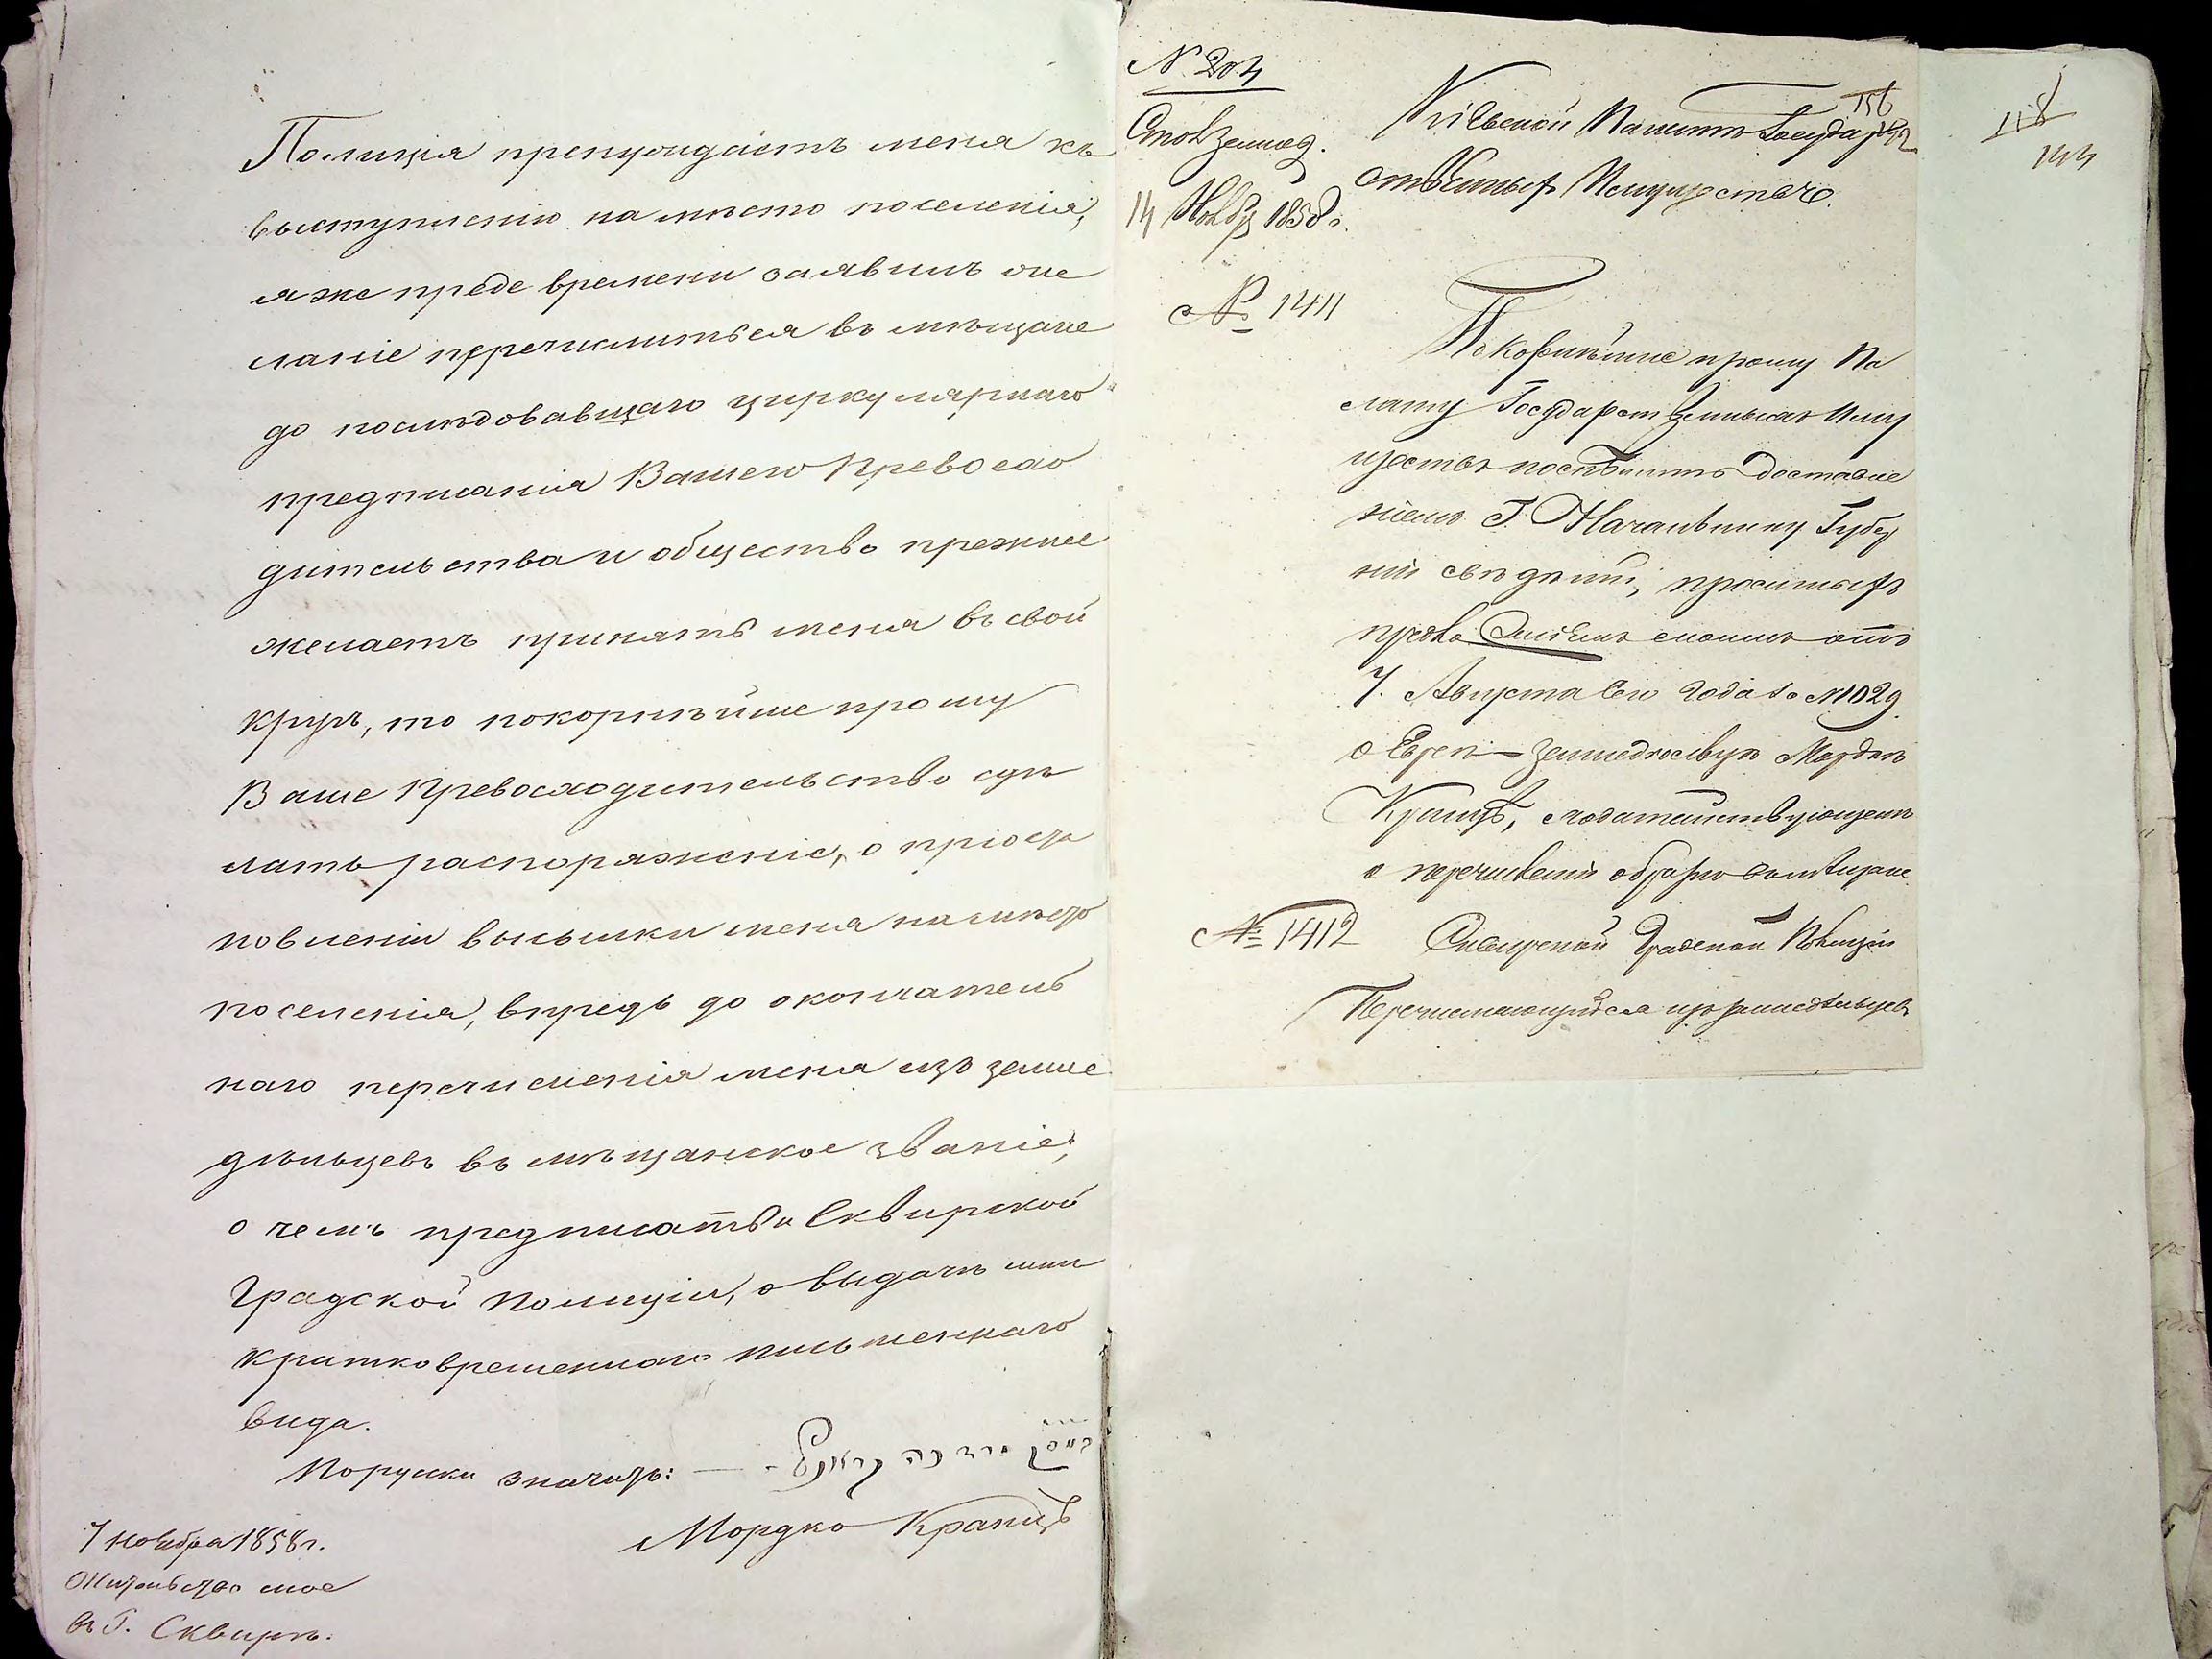 Полиція препуждаетъ меня къ
выступленію на мѣсто поселенія,
я же преде времени заявилъ же
ланіе перечислиться въ мѣщане
до послѣдовавшаго циркулярнаго
предписанія Вашего Превосхо
дительства и общество прежнее
желаетъ принять меня въ свой
кругъ, то покорнѣйше прошу
Ваше Превосходительство сдѣ
лать распоряженіе, о пріоста
новленіи высылки меня на мѣсто
поселенія, впредь до окончатель
наго перечисленія меня изъ земле
дѣльцевъ въ мѣщанское званіе,
о чемъ предписать и Сквирской
Градской Полиціи, о выдачѣ мнѣ
кратковременнаго письменнаго
вида.
Поруски значитъ: —
Мордко Кранцъ
7 Ноября 1858 г.
Жительство мое
въ Г. Сквирѣ.
N. 204
Столъ Землед.
14 Ноябр 1858 г.
№ 1411
Кіевской Палатѣ Государ
ственныхъ Имуществъ.
156
118
144
Покорнѣйше прошу Па
лату Государственныхъ Иму
ществъ поспѣшить доставле
ніемъ Г. Начальнику Губер
ніи свѣдѣній, просимыхъ
предложеніемъ моимъ отъ
7. Августа сего года за N 1029
о Евреѣ-земледѣльцѣ Мордкѣ
Кранцѣ, ходатайствующемъ
о перечисленіи обратно въ мѣщане.
№ 1412
Сквирской Градской Поліціи
Перечисляющійся изъ земледѣльцевъ